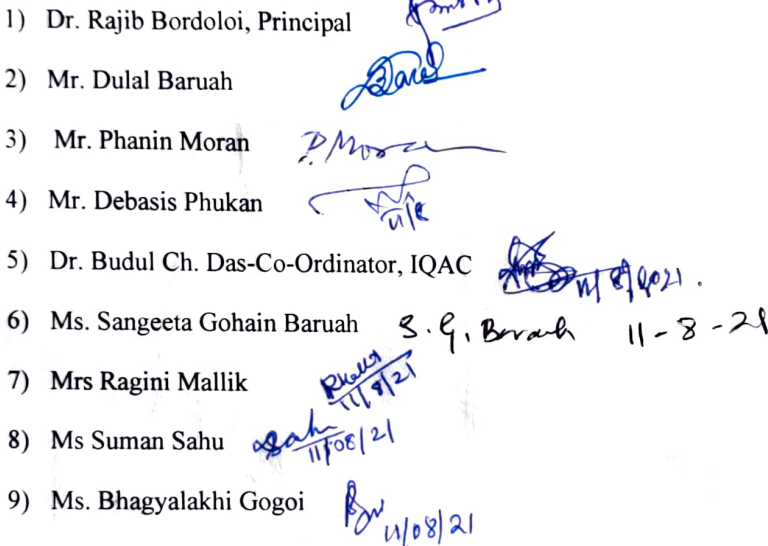 1) Dr. Rajib Bordoloi, Principal
2) Mr. Dulal Baruah
3) Mr. Phanin Moran P. Moran
4) Mr. Debasis Phukan 11/8
5) Dr. Budul Ch. Das-Co-Ordinator, IQAC 11/8/2021.
6) Ms. Sangeeta Gohain Baruah S. G. Baruah 11-8-21
7) Mrs Ragini Mallik 11/8/21
8) Ms Suman Sahu Sahu 11/08/21
9) Ms. Bhagyalakhi Gogoi 11/08/21